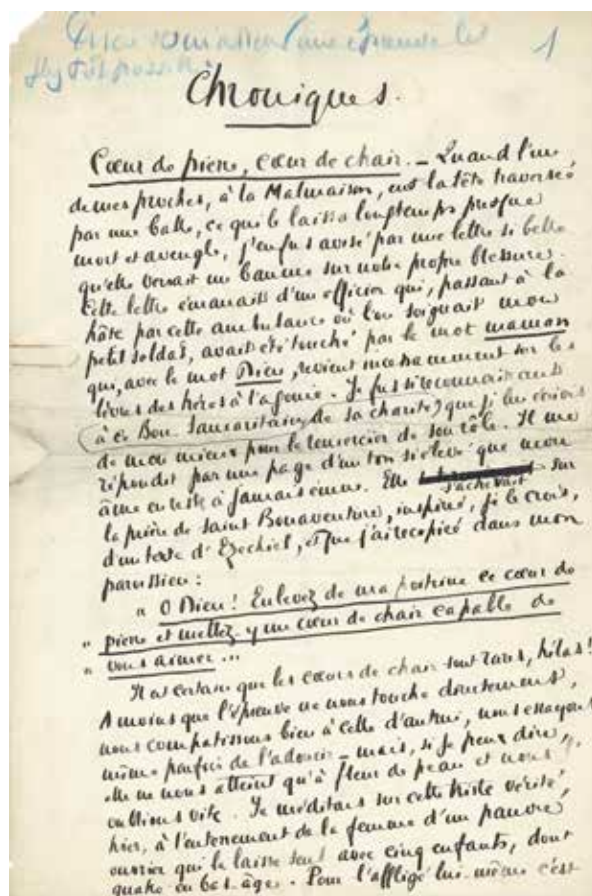 une épreuve le 1
plus tôt possible
Chroniques.
Cœur de pierre, cœur de chair. — Quand l'un
de mes proches, à la Malmaison, eut la tête traversée
par une balle, ce qui le laissa longtemps presque
mort et aveugle, j'en fus avisé par une lettre si belle
qu'elle versait un baume sur notre propre blessure.
Cette lettre émanait d'un officier qui, passant à la
hâte par cette ambulance où l'on soignait mon
petit soldat, avait été touché par le mot maman
qui, avec le mot Dieu, revient incessamment sur les
lèvres des héros à l'agonie. Je fus si reconnaissant
à ce Bon Samaritain de sa charité, que je lui écrivis
de mon mieux pour le remercier de son rôle. Il me
répondit par une page d'un ton si élevé que mon
âme en reste à jamais émue. Elle s'achevait sur
la prière de Saint Bonaventure, inspirée, je le crois,
d'un texte d'Ezéchiel, et que j'ai recopiée dans mon
paroissien :
" O Dieu ! Enlevez de ma poitrine ce cœur de
" pierre et mettez-y un cœur de chair capable de
" vous aimer...
Il est certain que les cœurs de chair sont rares, hélas !
A moins que l'épreuve ne nous touche directement,
nous compatissons bien à celle d'autrui, nous essayons
même parfois de l'adoucir — mais, si je peux dire,
elle ne nous atteint qu'à fleur de peau et nous
oublions vite. Je méditais sur cette triste vérité,
hier, à l'enterrement de la femme d'un pauvre
ouvrier qui le laisse seul avec cinq enfants, dont
quatre en bas-âge. Pour l'affligé lui-même c'est